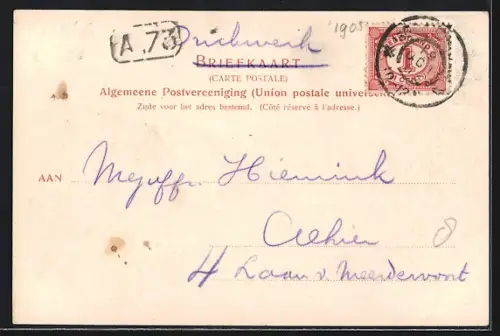 A.73
Drukwerk
1905
BRIEFKAART
(CARTE POSTALE)
Algemeene Postvereeniging (Union postale universelle)
Zijde voor het adres bestemd. (Côté réservé à l'adresse.)
AAN Mejuffr. Hiemink
Alhier
8
4 Laan v. Meerdervoort